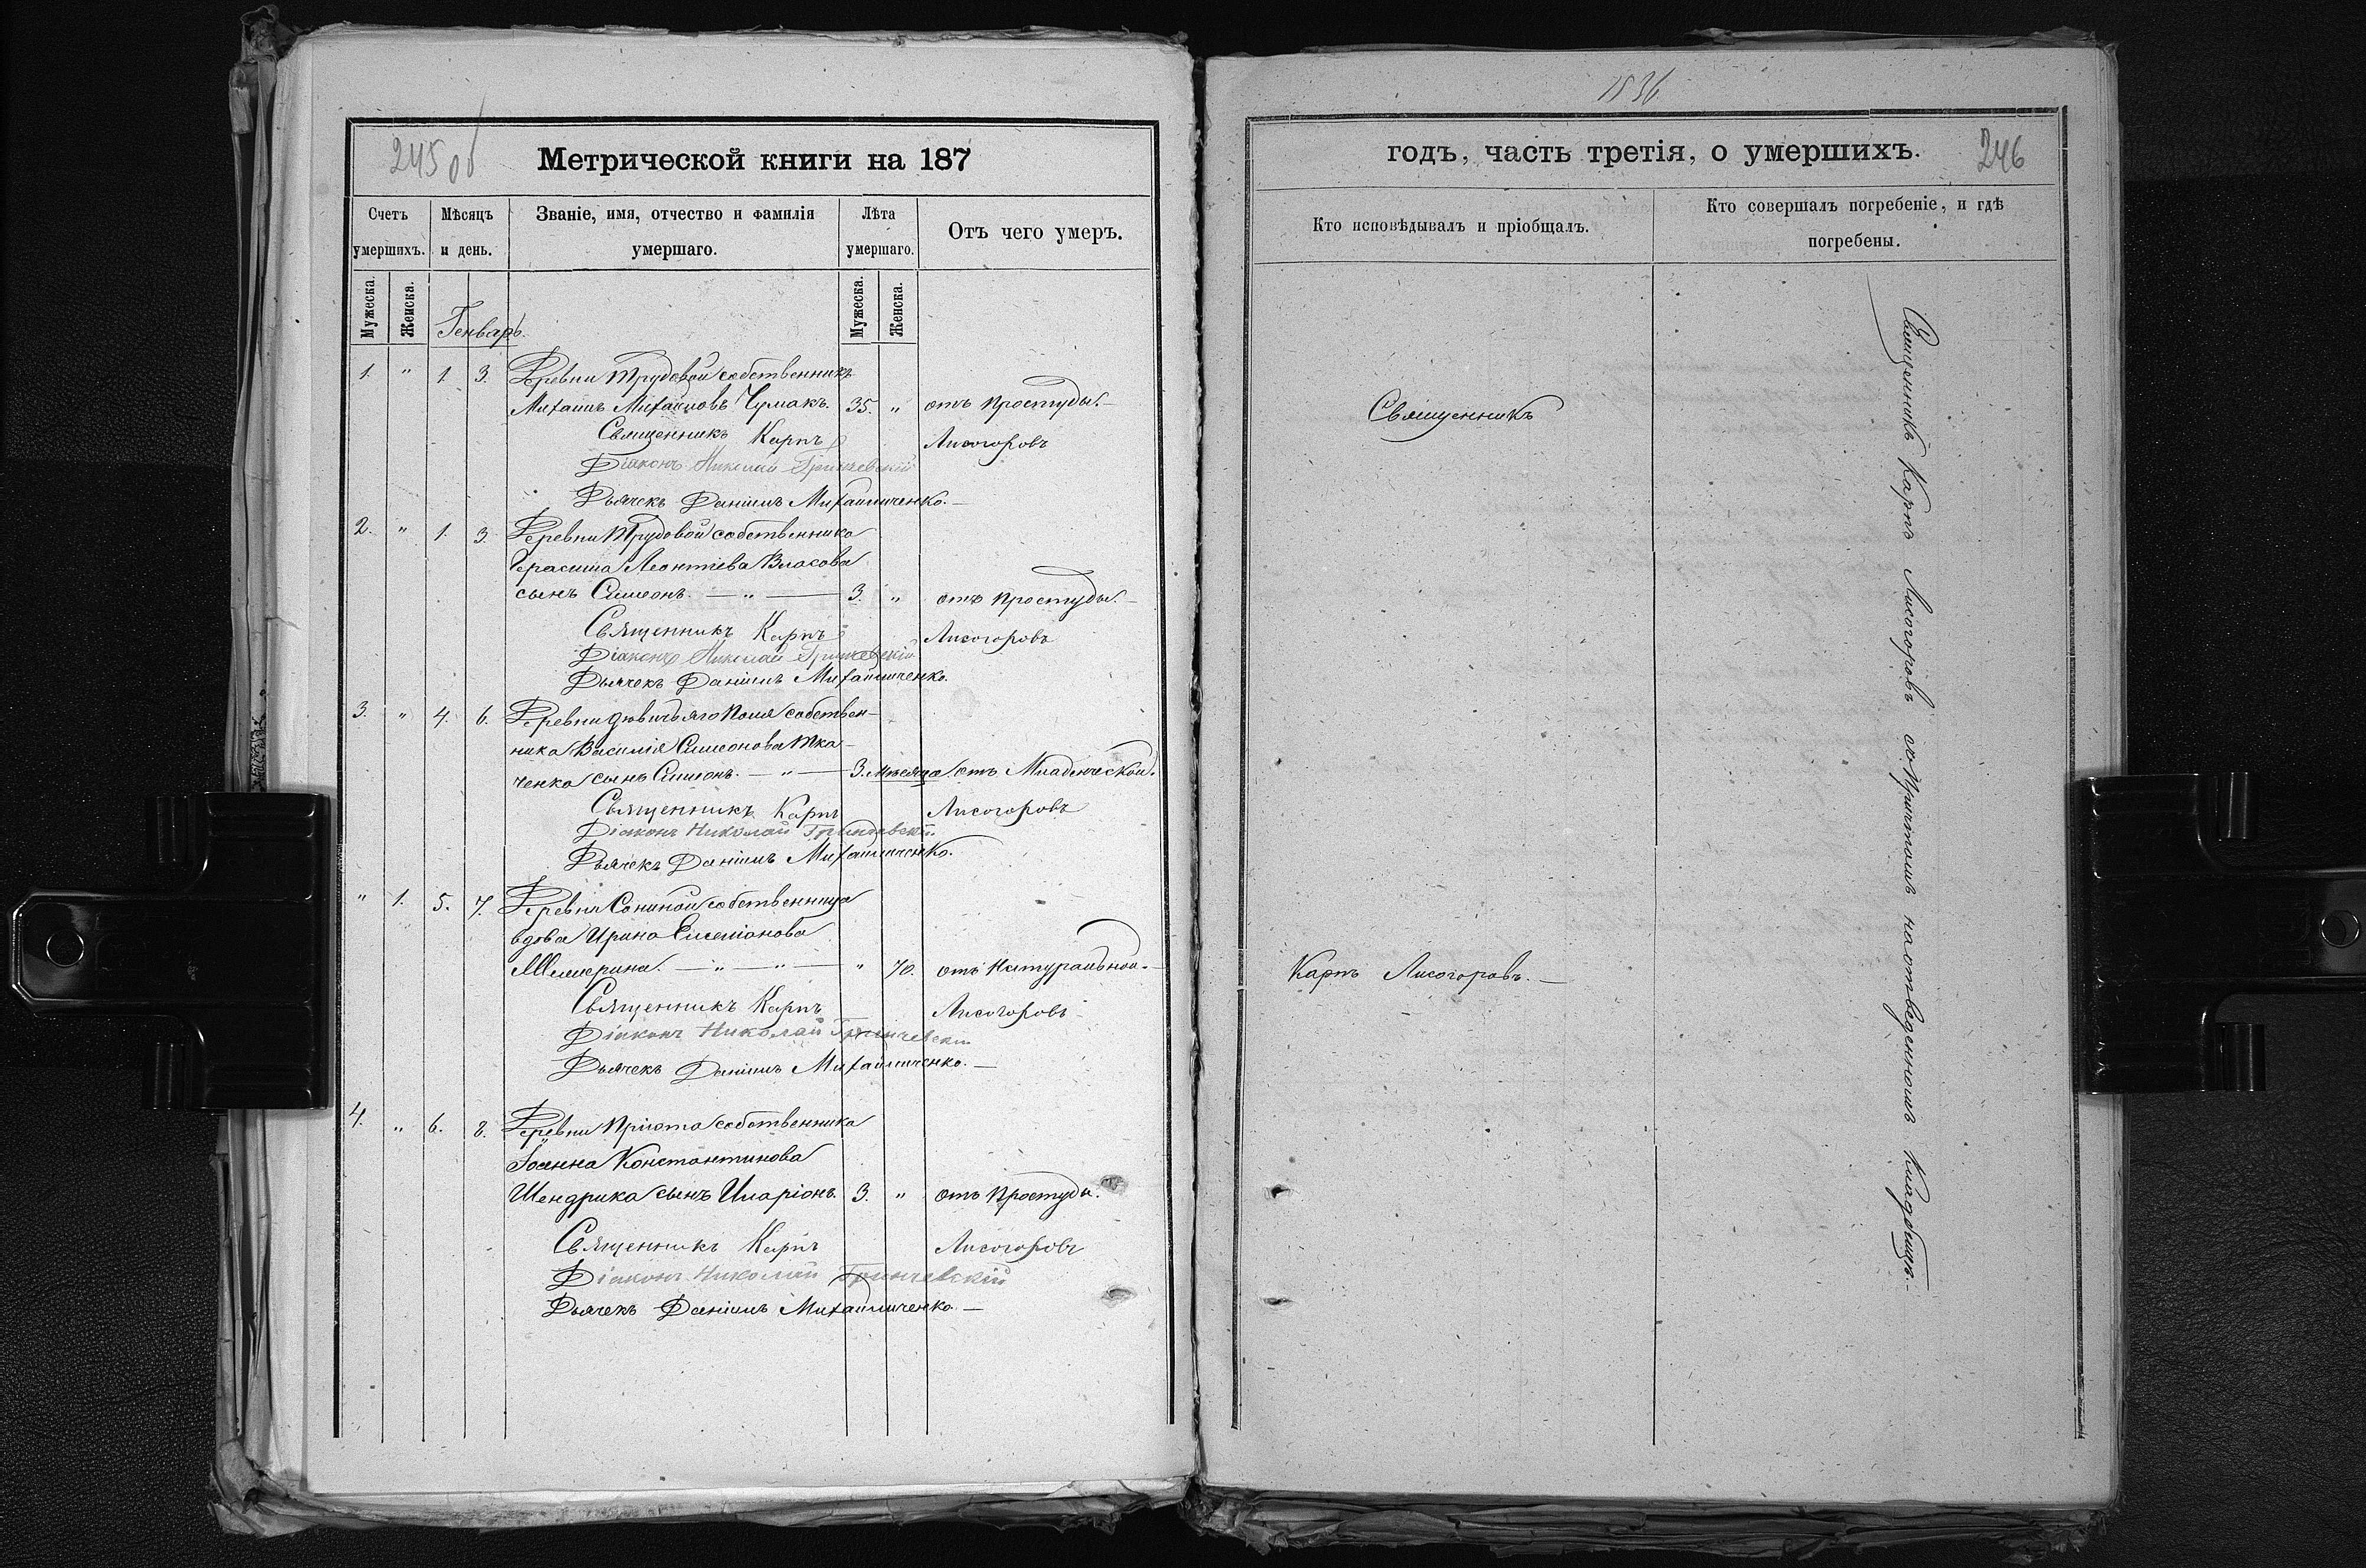 245 об
Метрической книги на 187
Счетъ умершихъ.
Мѣсяцъ и день.
Званіе, имя, отчество и фамилія умершаго.
Лѣта умершаго.
Отъ чего умеръ.
Мужеска.
Женска.
Мужеска.
Женска.
Генварь.
1. " 1. 3. Деревни Трудовой собственникъ
Михаилъ Михайловъ Чумакъ. 35. " отъ простуды.
Священникъ Карпъ Лисогоровъ
Діаконъ Николай Гринчевскій
Дьячекъ Даніилъ Михайличенко.
2. " 1. 3. Деревни Трудовой собственника
Герасима Леонтіева Власова
сынъ Симеонъ. — " — 3. " отъ простуды.
Священникъ Карпъ Лисогоровъ
Діаконъ Николай Гринчевскій
Дьячекъ Даніилъ Михайличенко.
3. " 4. 6. Деревни Дѣвичьяго Поля собствен-
ника Василія Симеонова Тка-
ченка сынъ Симеонъ. — " — 3. мѣсяца отъ Младенческой.
Священникъ Карпъ Лисогоровъ
Діаконъ Николай Гринчевскій
Дьячекъ Даніилъ Михайличенко.
" 1. 5. 7. Деревни Сониной собственница
вдова Ирина Емеліанова
— " — " — " 70. отъ Натуральной.
Священникъ Карпъ Лисогоровъ
Діаконъ Николай Гринчевскій
Дьячекъ Даніилъ Михайличенко. —
4. " 6. 8. Деревни Пріюта собственника
Іоанна Константинова
Шендрика сынъ Иларіонъ 3. " отъ простуды.
Священникъ Карпъ Лисогоровъ
Діаконъ Николай Гринчевскій
Дьячекъ Даніилъ Михайличенко —
1836
годъ, часть третія, о умершихъ.
246
Кто исповѣдывалъ и пріобщалъ.
Кто совершалъ погребеніе, и гдѣ погребены.
Священникъ
Карпъ Лисогоровъ. —
Священникъ Карпъ Лисогоровъ съ Причтомъ на отведенномъ Кладбищѣ. —